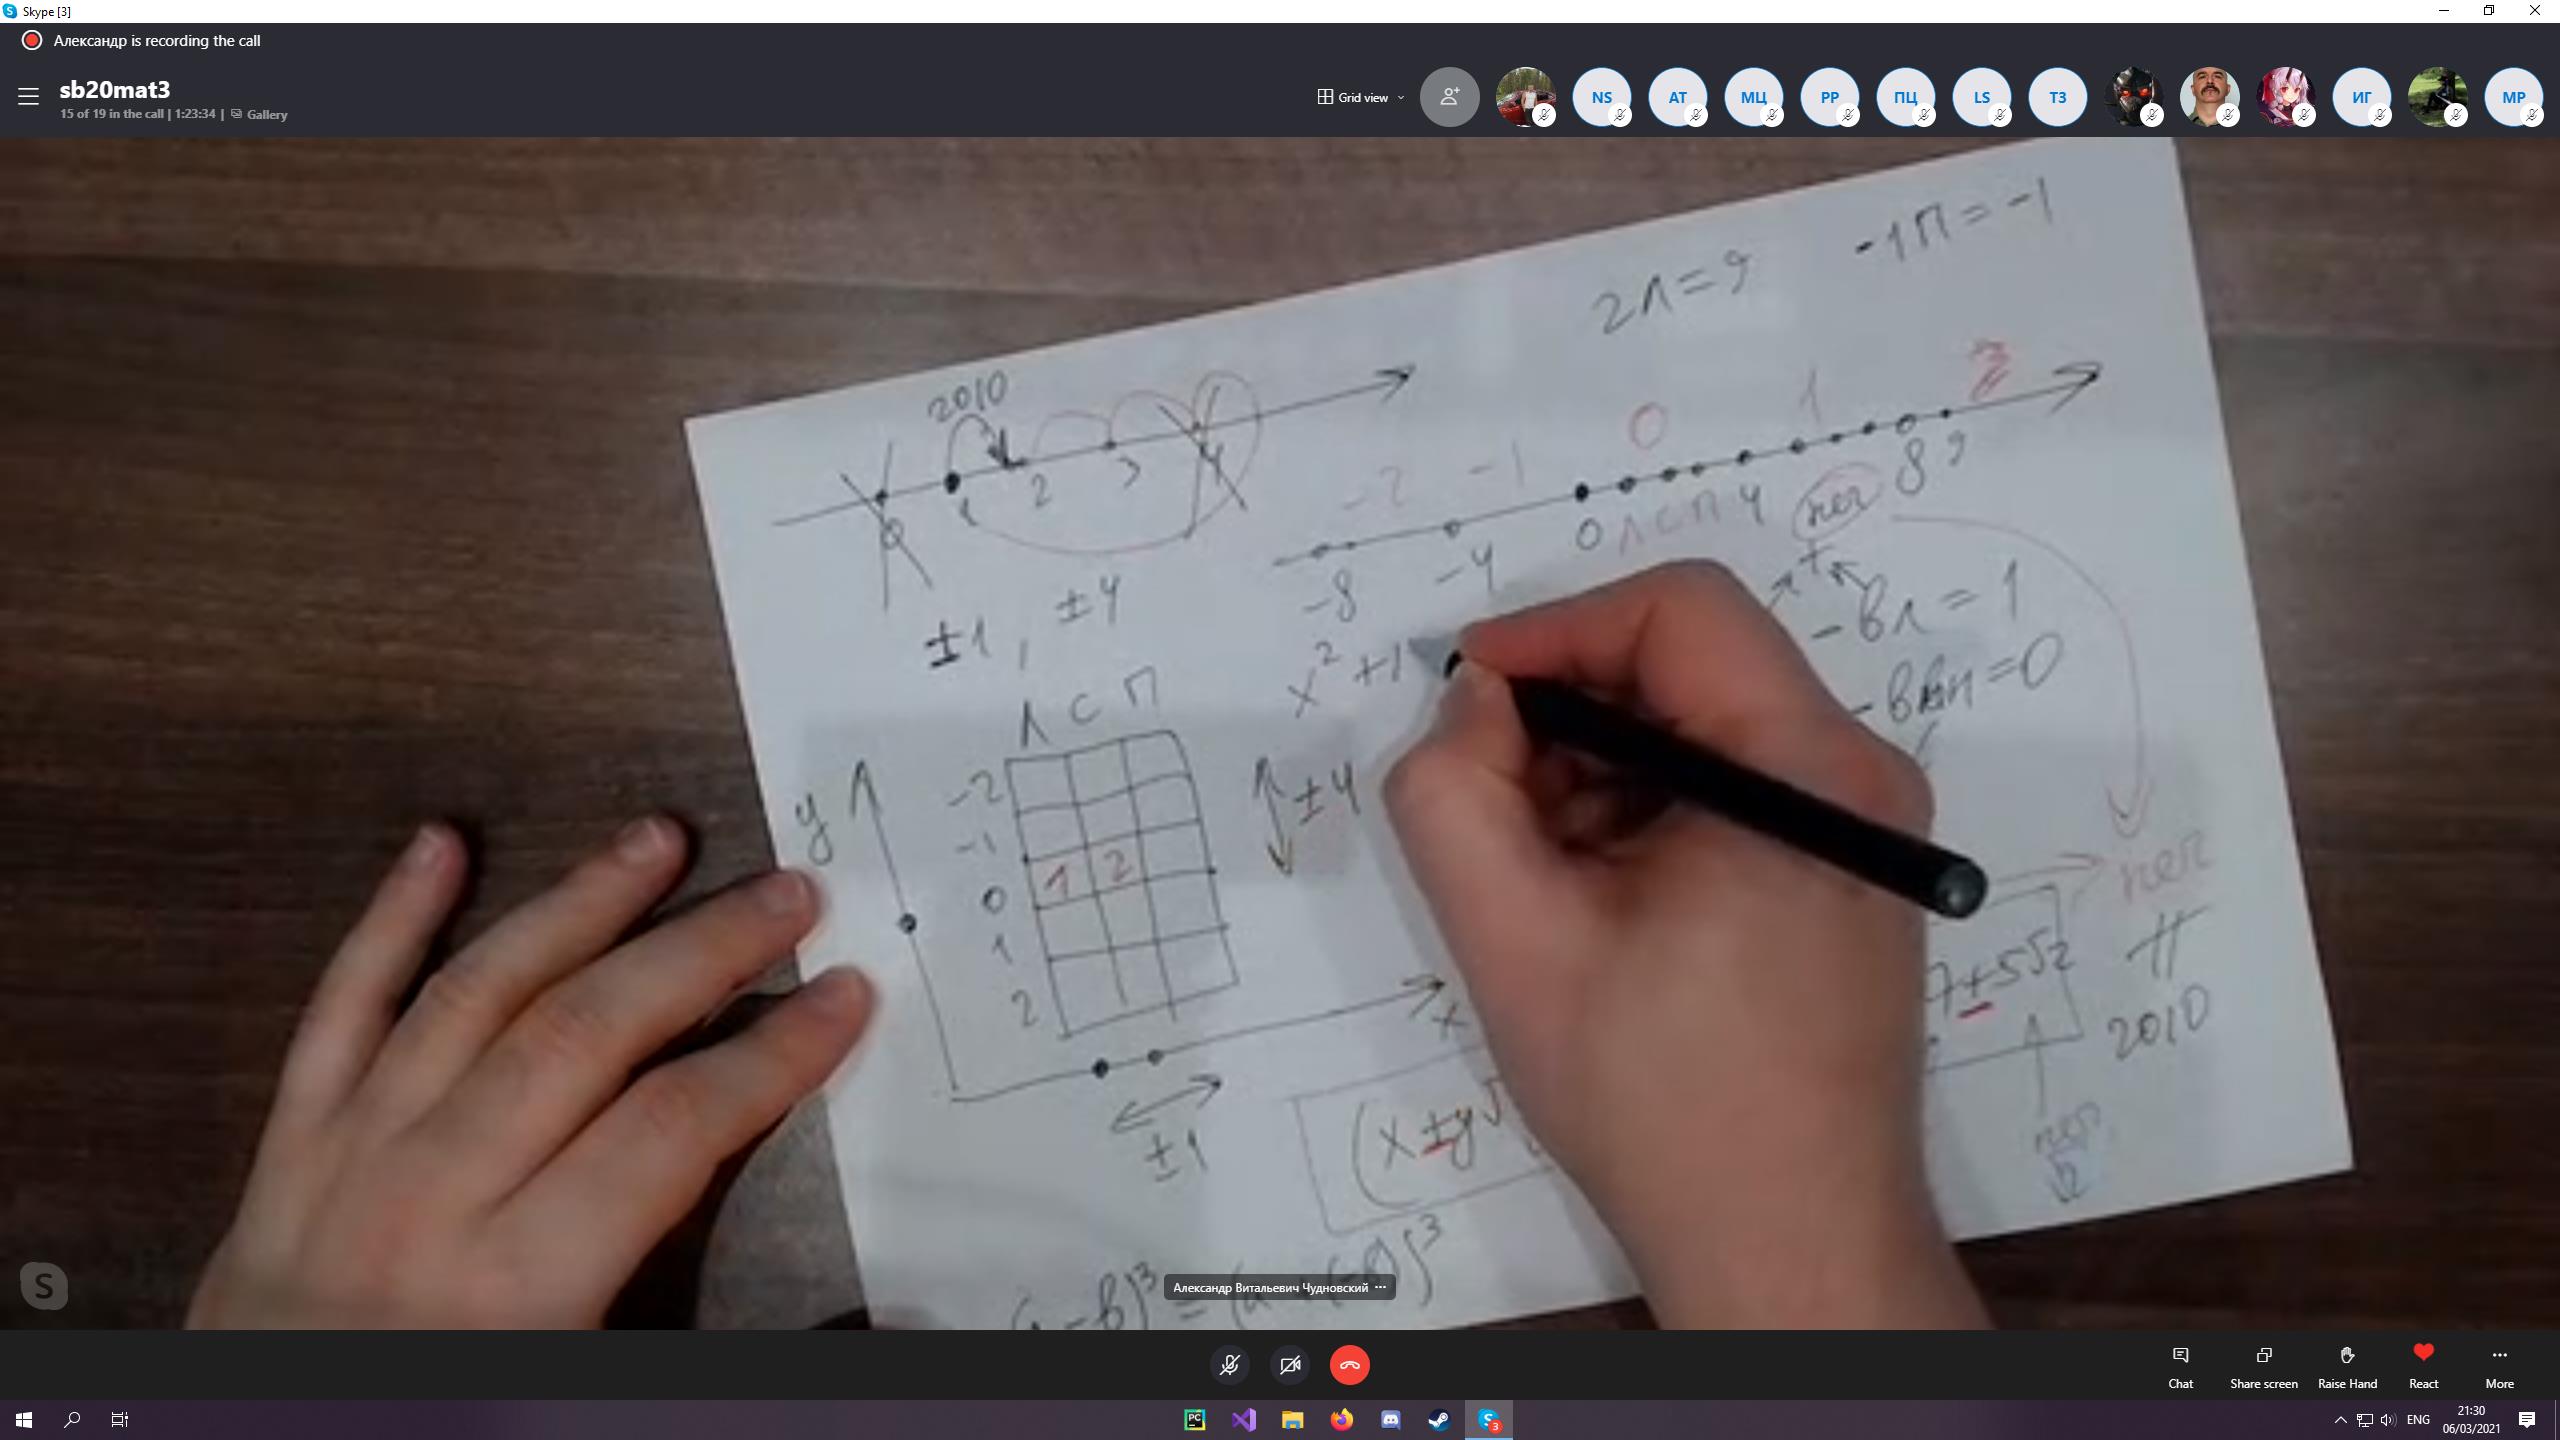 Skype [3]
Александр is recording the call
sb20mat3
15 of 19 in the call | 1:23:34 | Gallery
Grid view
NS
AT
МЦ
PP
ПЦ
LS
ТЗ
ИГ
МР
2Л=9
-1П=-1
2010
0
1
2
3
4
-2 -1 0 1 2
-8 -4 0 Л С П 4 неч 8 9
±1, ±4
x² +1
+
-вл = 1
=0
Л С П
-2
-1
0 1 2
1
2
y
±4
x
±1
7+5√2
2010
(x±y√
)³ = )³
S
Александр Витальевич Чудновский ...
Chat
Share screen
Raise Hand
React
More
PC
S 3
ENG
21:30
06/03/2021